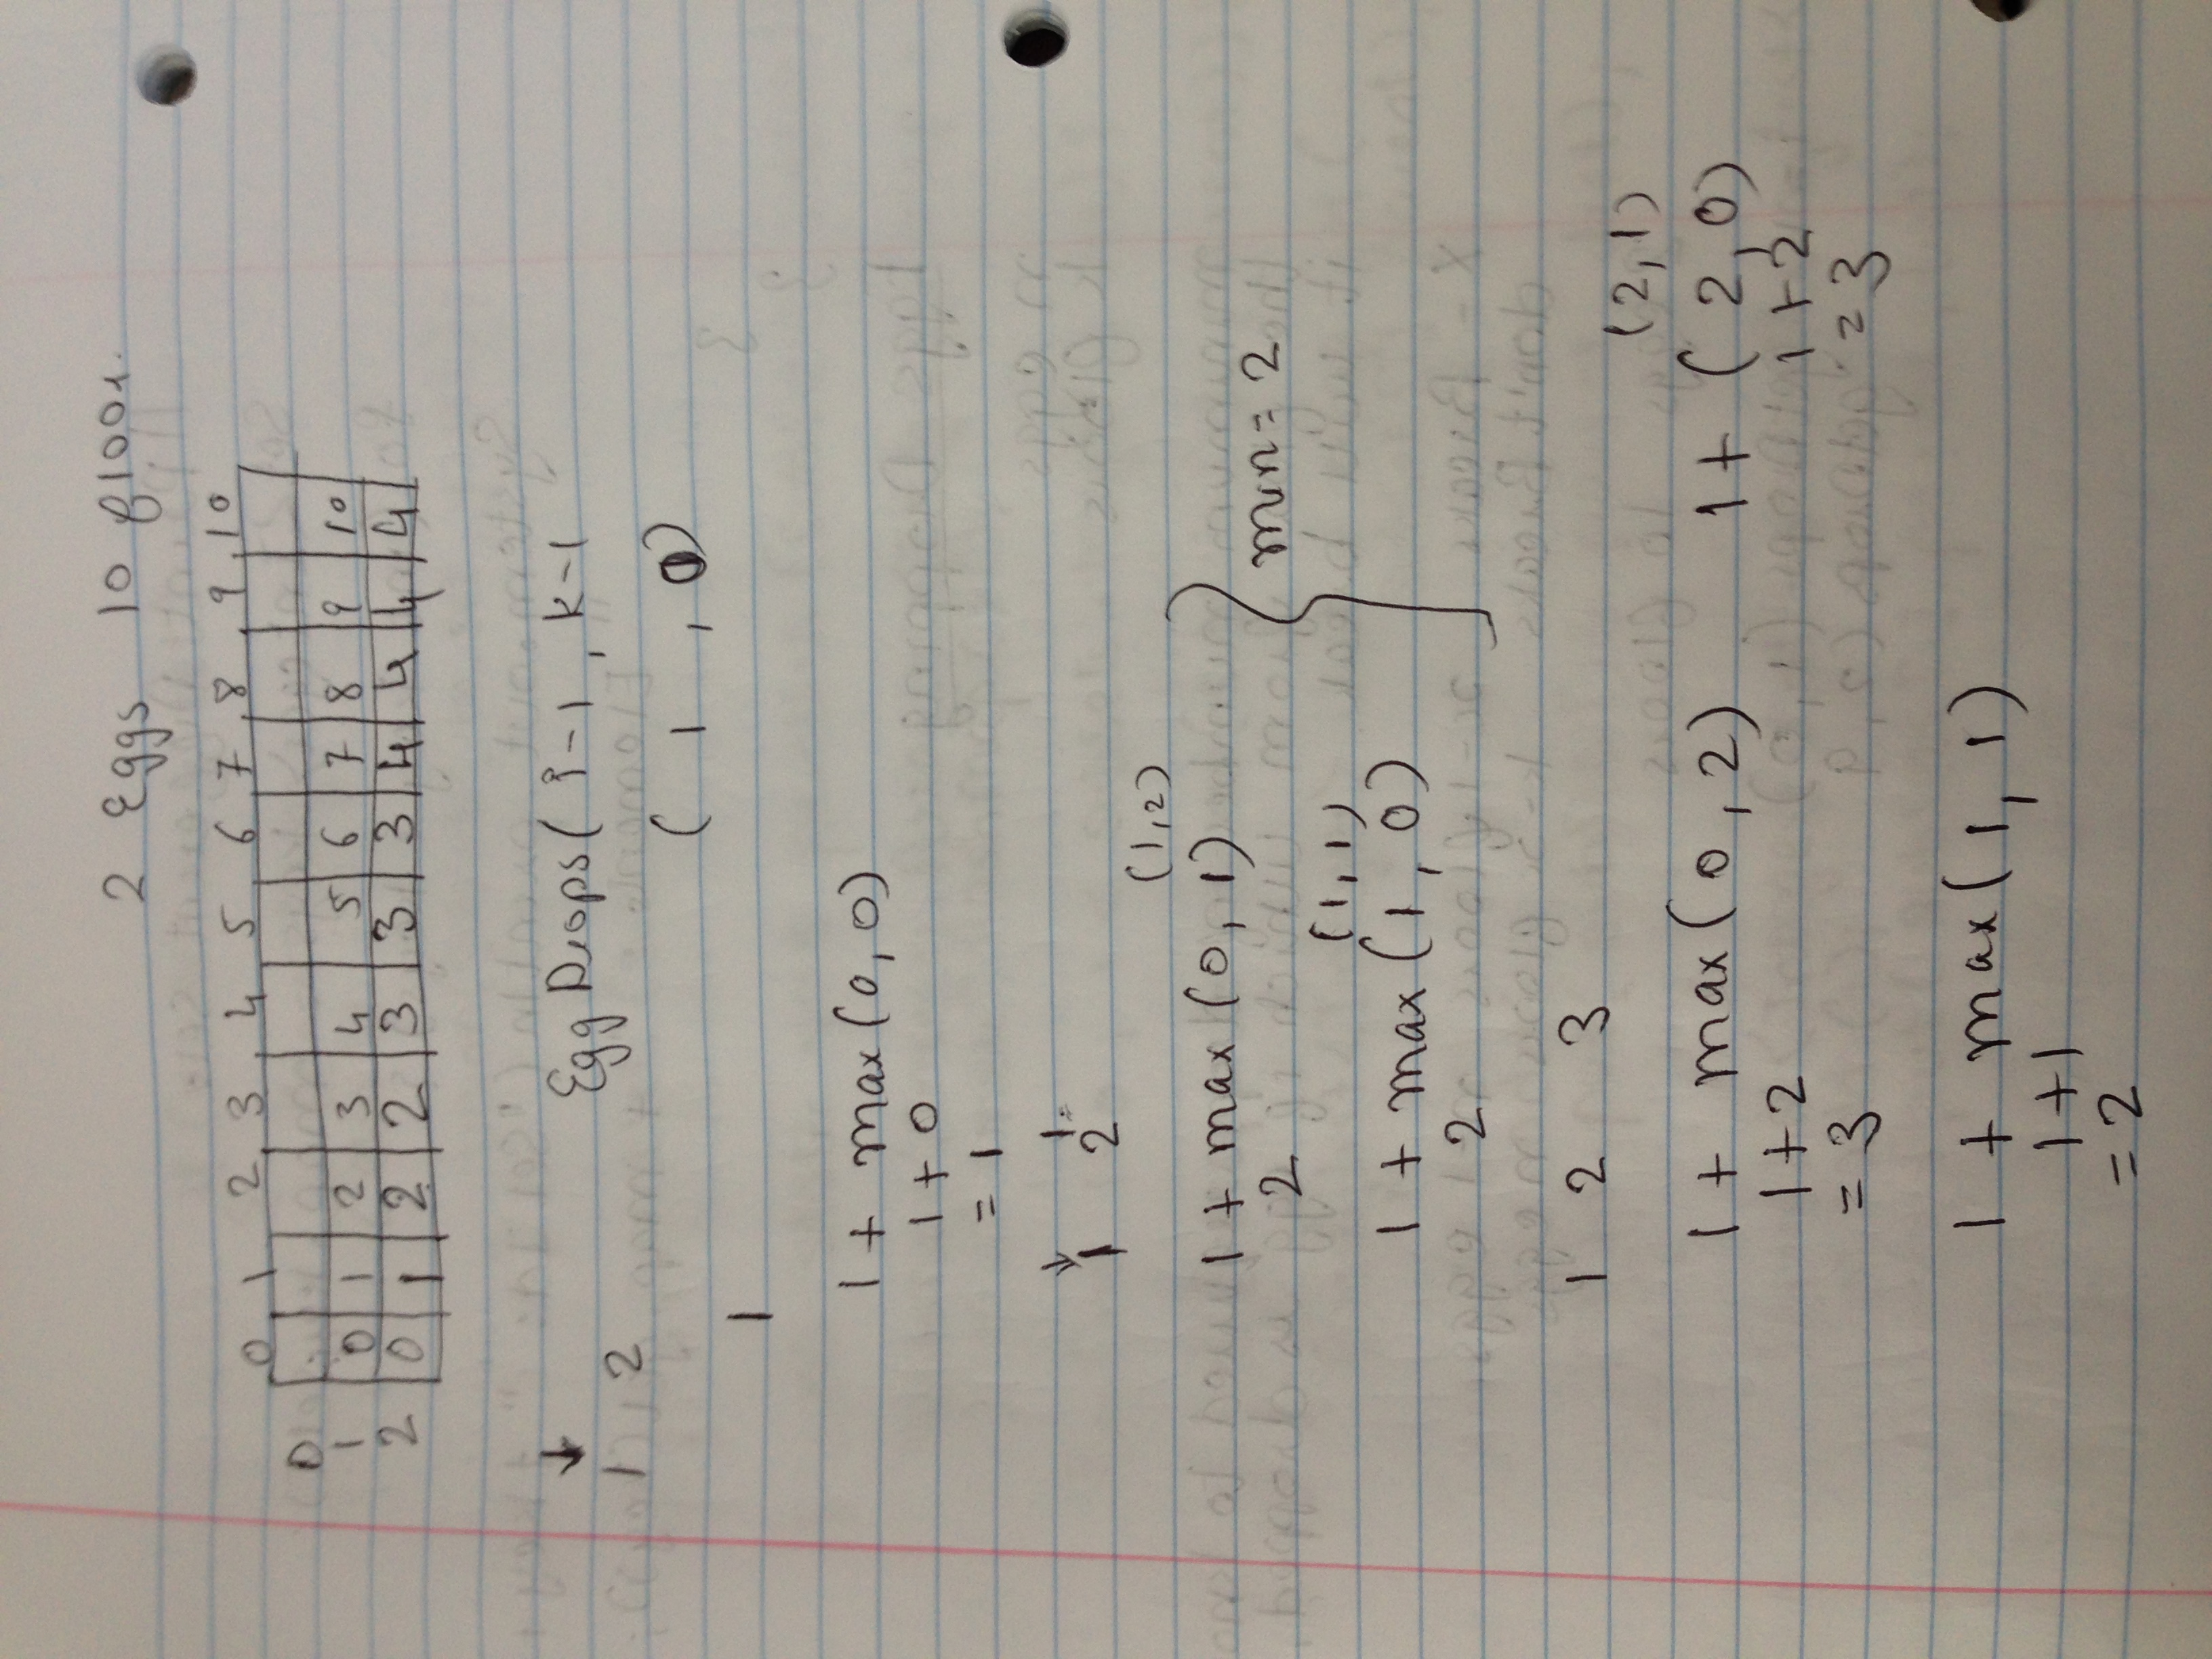 2 Eggs 10 floor.
0 1 2 3 4 5 6 7 8 9 10
0
1 0 1 2 3 4 5 6 7 8 9 10
2 0 1 2 2 3 3 3 4 4 4 4
↓
1 2 EggDrops( i-1, k-1
( 1 , 0)
1
1 + max(0,0)
1 + 0
= 1
↓ 1
1 2
(1,2)
1 + max(0, 1)
2
min = 2
(1,1)
1 + max(1, 0)
2
1 2 3
(2,1)
1 + max(0,2) 1 + (2,0)
1+2 1+2
= 3 = 3
1 + max(1, 1)
1+1
= 2